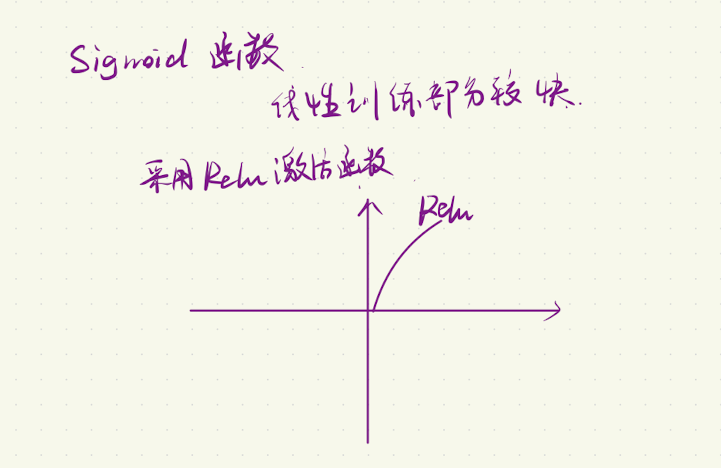 Sigmoid 函数
线性训练部分较快.
采用Relu激活函数
Relu